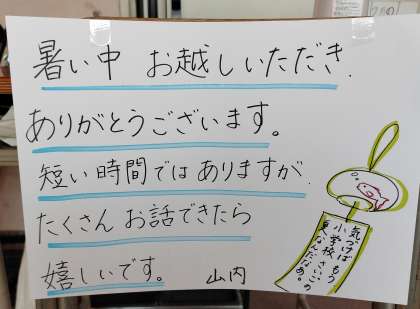 暑い中 お越しいただき、
ありがとうございます。
短い時間ではありますが、
たくさんお話できたら
嬉しいです。 山内
気づけば もう
小学校さいごの
夏なんだなぁ。